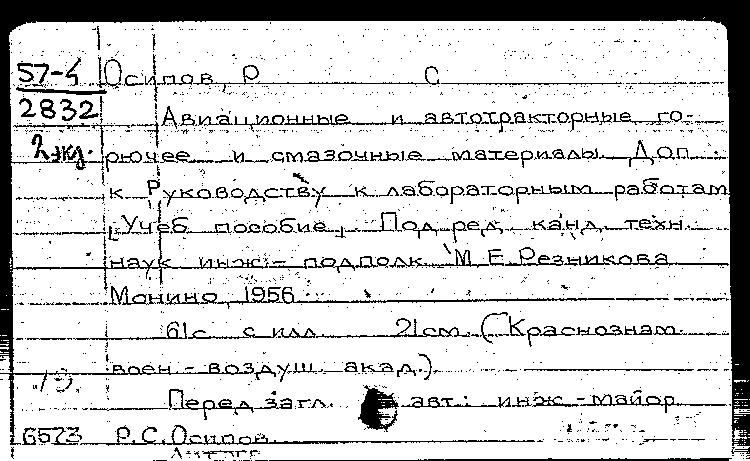 57-4 Осипов, Р С
2832 Авиационные и автотракторные го-
2 экз. рючее и смазочные материалы. Доп.
к Руководству к лабораторным работам
[Учеб пособие] Под ред. канд. техн.
наук инж.-подполк. М. Е. Резникова
Монино, 1956
61с. с илл. 21см. (Краснознам.
воен-воздуш. акад.)
Перед загл. авт.: инж.-майор
6573 Р.С.Осипов.